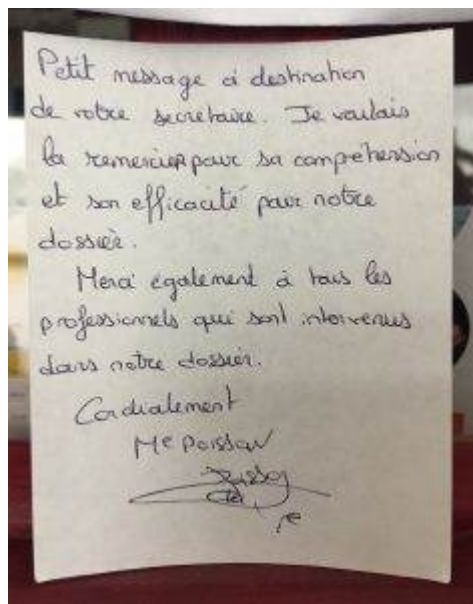 Petit message à destination
de votre secrétaire. Je voulais
la remercier pour sa compréhension
et son efficacité pour notre
dossier.
Merci également à tous les
professionnels qui sont intervenus
dans notre dossier.
Cordialement
Me Poisson